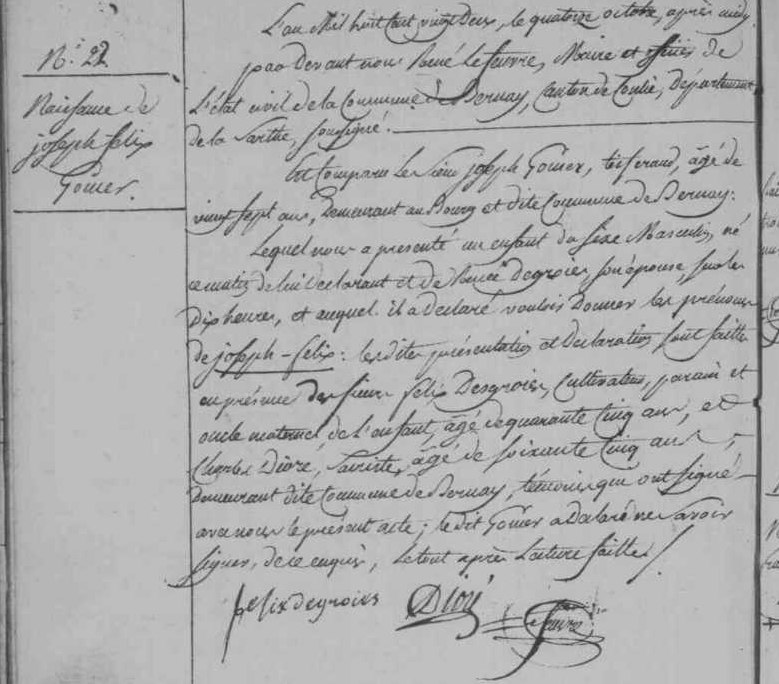 N.° 22
Naissance de
joseph-felix
Gomer.
L'an Mil huit Cent vingt Deux, le quatorze octobre, après midy
par Devant nous René Lefeuvre, Maire et officier de
L'état civil de la Commune de Bernay, Canton de Conlie, Département
de la Sarthe, soussigné.
Est Comparu Le Sieur joseph Gomer, tisserand, âgé de
vingt sept ans, Demeurant au Bourg et dite Commune de Bernay:
Lequel nous a presenté un enfant du sexe Masculin, né
ce matin de lui Declarant et de Renée Degroies, son épouse, sur les
Dix heures, et auquel il a declaré vouloir Donner les prénoms
de joseph-felix: les dites présentation et Declaration sont faittes
en présence des sieurs felix Desgroies, Cultivateur, parain et
oncle maternel de l'enfant, âgé de quarante Cinq ans, et
Charles Dioré, âgé de soixante Cinq ans,
Demeurant dite Commune de Bernay, témoins qui ont signé
avec nous le présent acte; le dit Gomer a Declaré ne savoir
signer, de ce enquis, le tout après Lecture faitte
felix degroies Dioré Lefeuvre